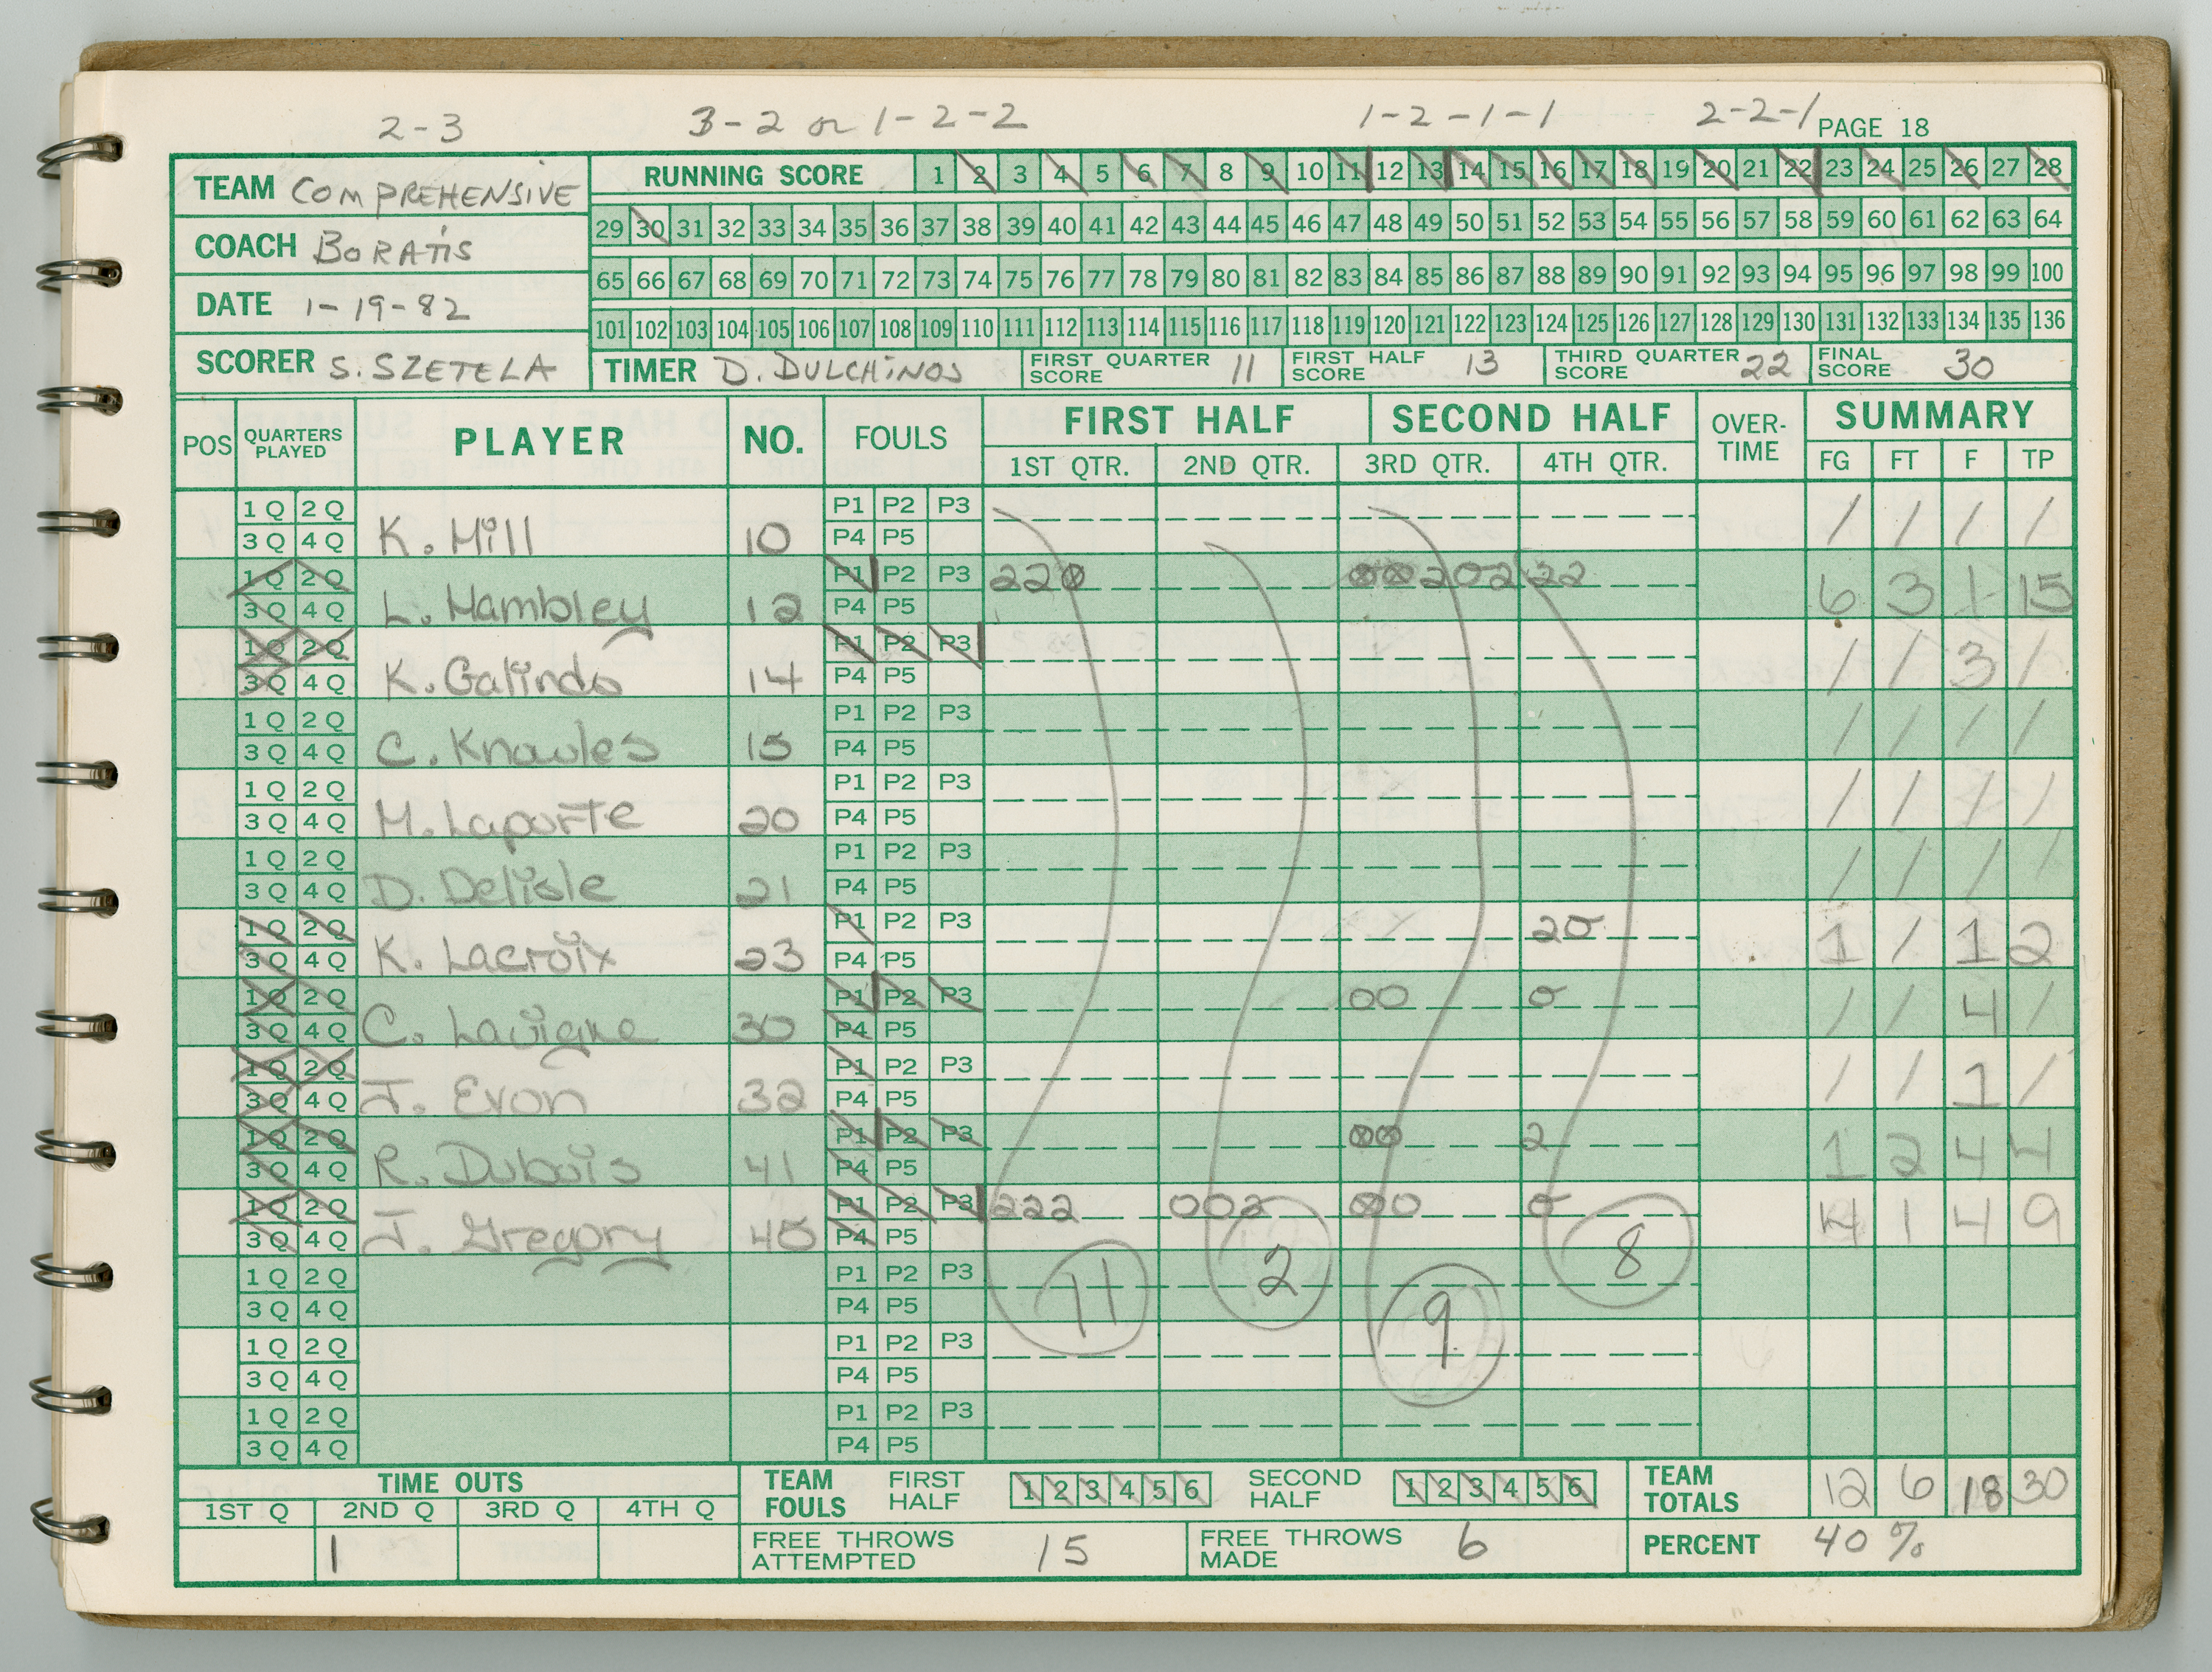 2-3 3-2 or 1-2-2 1-2-1-1 2-2-1 PAGE 18
TEAM COMPREHENSIVE
COACH BORATIS
DATE 1-19-82
SCORER S. SZETELA
RUNNING SCORE 1 2 3 4 5 6 7 8 9 10 11 12 13 14 15 16 17 18 19 20 21 22 23 24 25 26 27 28
29 30 31 32 33 34 35 36 37 38 39 40 41 42 43 44 45 46 47 48 49 50 51 52 53 54 55 56 57 58 59 60 61 62 63 64
65 66 67 68 69 70 71 72 73 74 75 76 77 78 79 80 81 82 83 84 85 86 87 88 89 90 91 92 93 94 95 96 97 98 99 100
101 102 103 104 105 106 107 108 109 110 111 112 113 114 115 116 117 118 119 120 121 122 123 124 125 126 127 128 129 130 131 132 133 134 135 136
TIMER D. DULCHINOS FIRST QUARTER SCORE 11 FIRST HALF SCORE 13 THIRD QUARTER SCORE 22 FINAL SCORE 30
POS QUARTERS PLAYED PLAYER NO. FOULS FIRST HALF SECOND HALF OVER-TIME SUMMARY
1ST QTR. 2ND QTR. 3RD QTR. 4TH QTR. FG FT F TP
1 Q 2 Q P1 P2 P3
3 Q 4 Q K. Hill 10 P4 P5 / / / /
1 Q 2 Q P1 P2 P3 220 00202 22
3 Q 4 Q L. Hambley 12 P4 P5 6 3 1 15
1 Q 2 Q P1 P2 P3
3 Q 4 Q K. Galindo 14 P4 P5 / / 3 /
1 Q 2 Q P1 P2 P3
3 Q 4 Q C. Knowles 15 P4 P5 / / / /
1 Q 2 Q P1 P2 P3
3 Q 4 Q M. Laporte 20 P4 P5 / / / /
1 Q 2 Q P1 P2 P3
3 Q 4 Q D. Delisle 21 P4 P5 / / / /
1 Q 2 Q P1 P2 P3 20
3 Q 4 Q K. Lacroix 23 P4 P5 1 / 1 2
1 Q 2 Q P1 P2 P3 00 0
3 Q 4 Q C. Lavigne 30 P4 P5 / / 4 /
1 Q 2 Q P1 P2 P3
3 Q 4 Q J. Evon 32 P4 P5 / / 1 /
1 Q 2 Q P1 P2 P3 00 2
3 Q 4 Q R. Dubois 41 P4 P5 1 2 4 4
1 Q 2 Q P1 P2 P3 222 002 00 0
3 Q 4 Q J. Gregory 45 P4 P5 4 1 4 9
1 Q 2 Q P1 P2 P3 11 2 9 8
3 Q 4 Q P4 P5
1 Q 2 Q P1 P2 P3
3 Q 4 Q P4 P5
1 Q 2 Q P1 P2 P3
3 Q 4 Q P4 P5
TIME OUTS
1ST Q 2ND Q 3RD Q 4TH Q
1
TEAM FOULS FIRST HALF 1 2 3 4 5 6 SECOND HALF 1 2 3 4 5 6
TEAM TOTALS 12 6 18 30
FREE THROWS ATTEMPTED 15 FREE THROWS MADE 6 PERCENT 40%